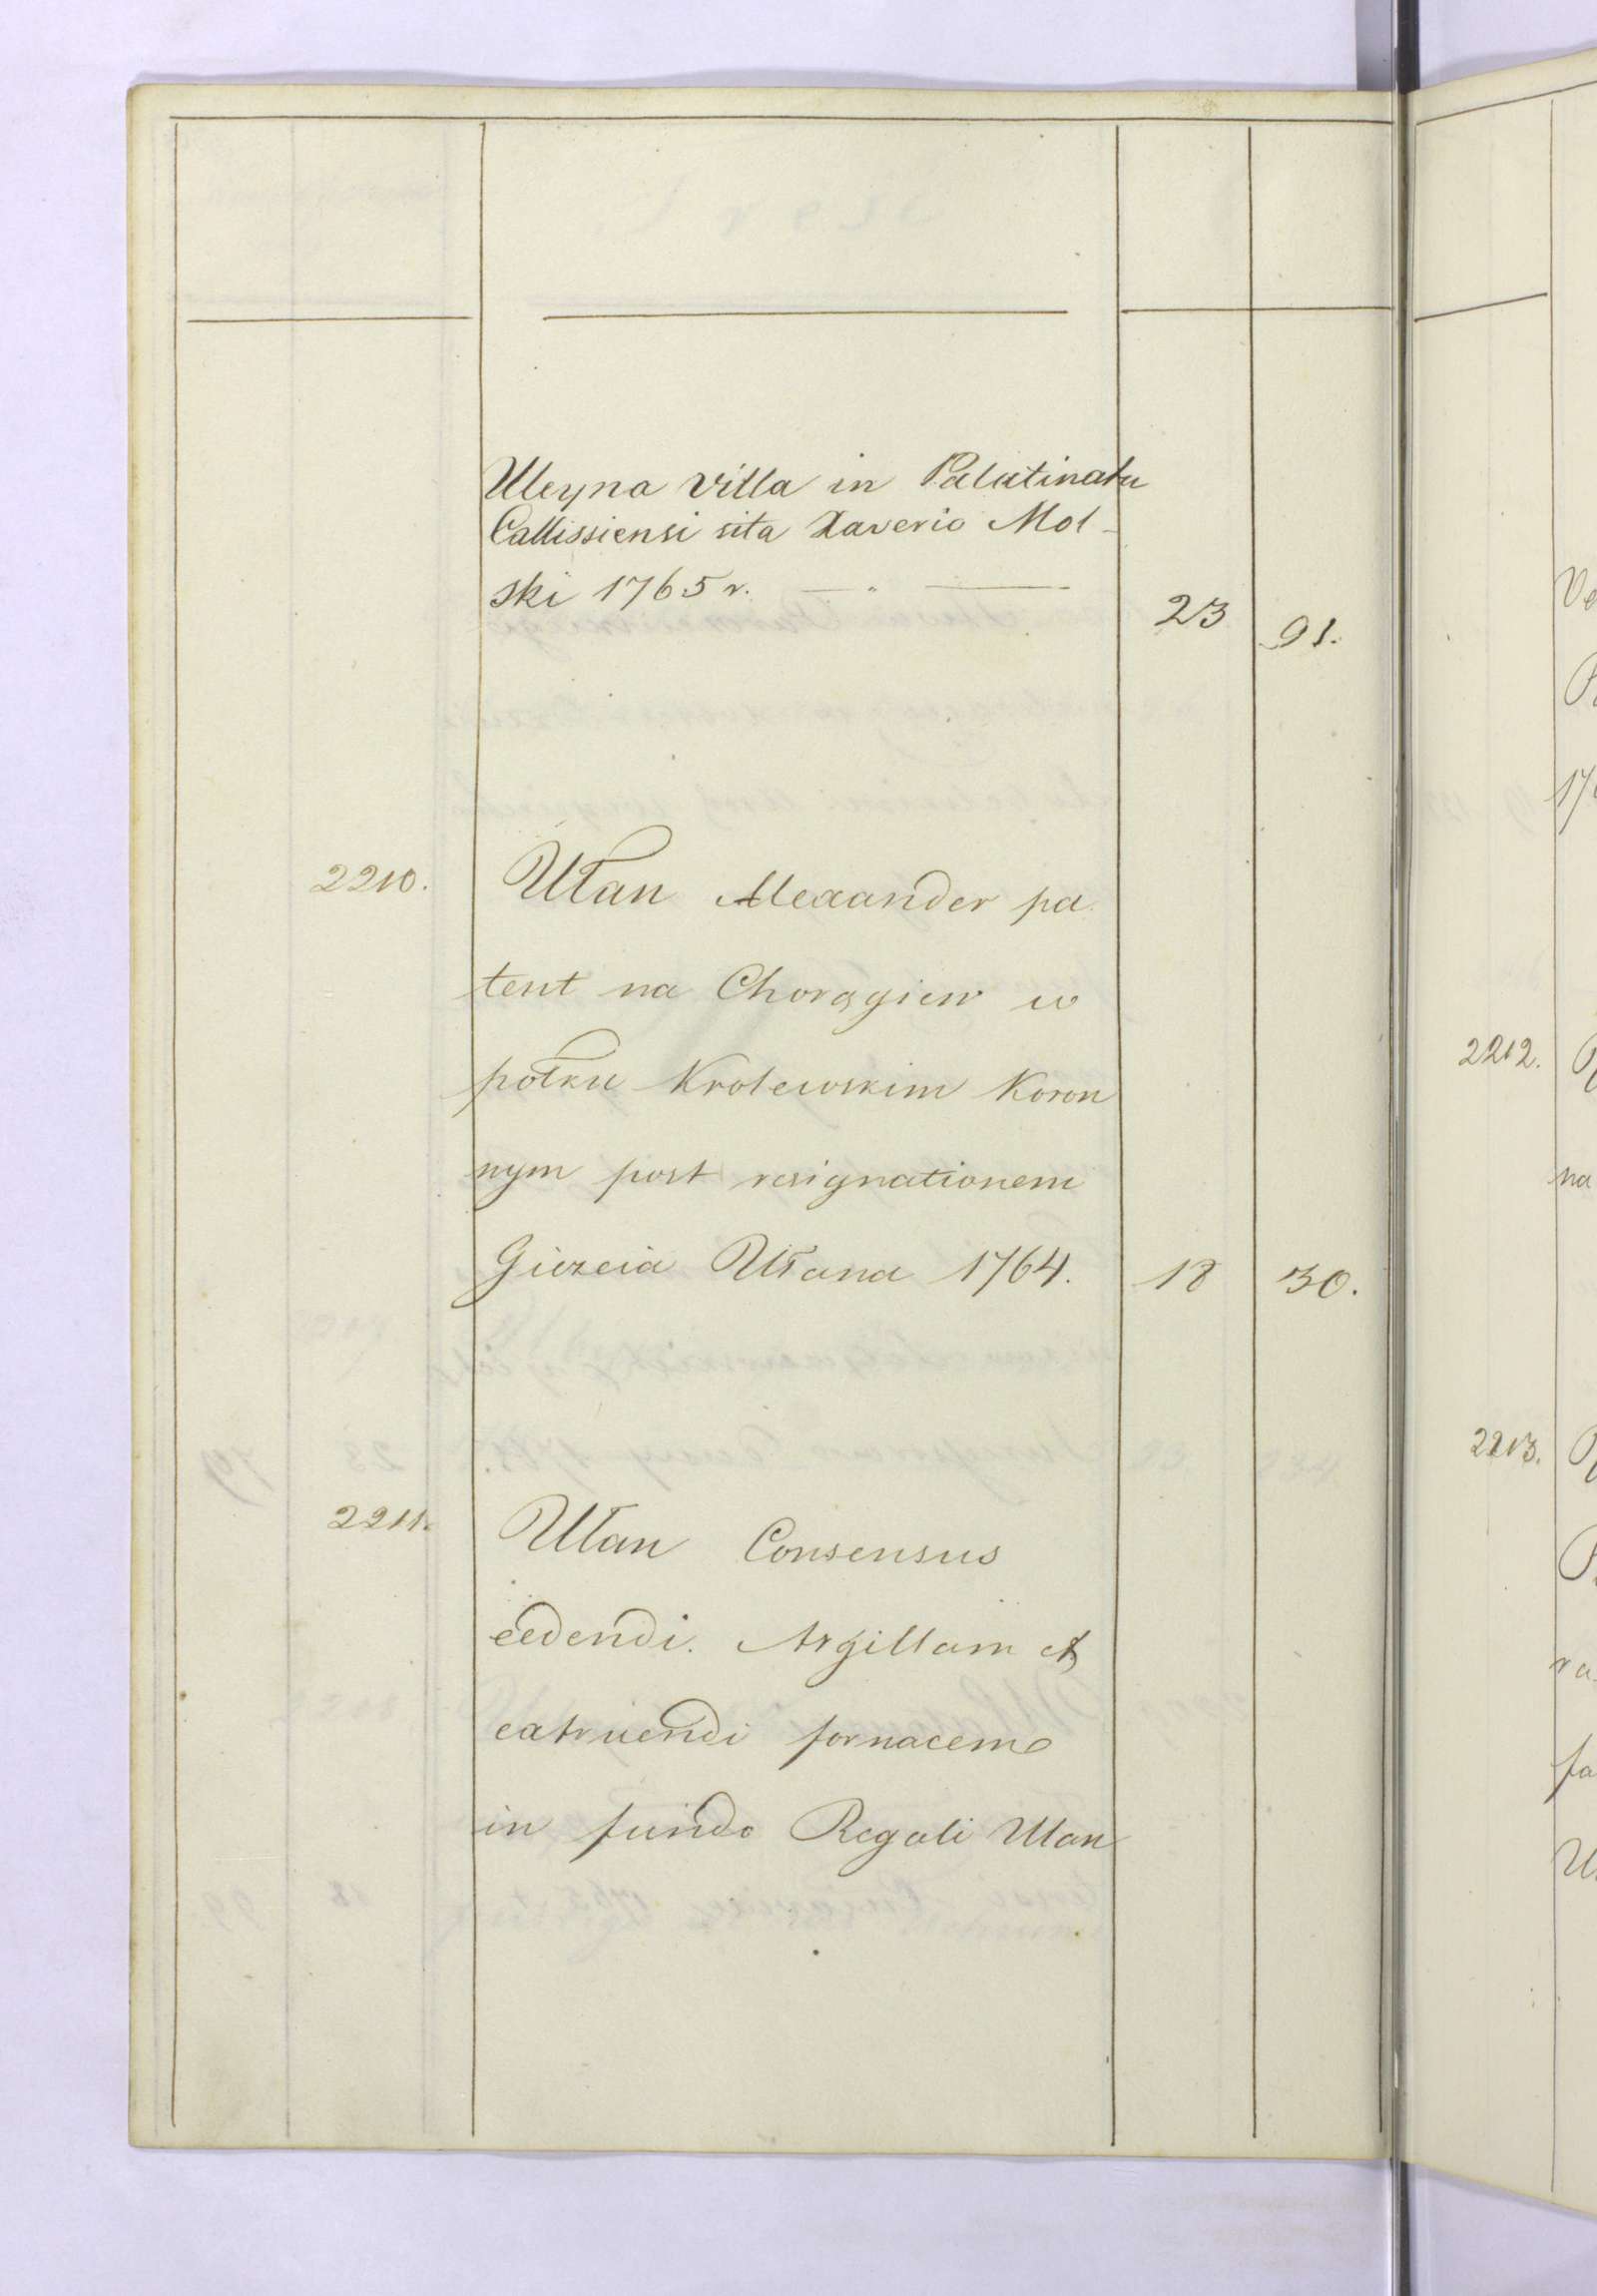 Uleyna villa in Palatinatu
Callissiensi sita Xaverio Mol-
ski 1765 r. — " —
23 91.
2210. Ułan Alexander pa
tent na Chorągiew w
połku Krolewskim Koron
nym post resignationem
Giuzeia Ułana 1764. 18 30.
2211. Ułan Consensus
eedendi. Argillam et
extruendi fornacem
in fundo Regali Ulan
Ve
17
2212.
na
2213.
ra
fa
U